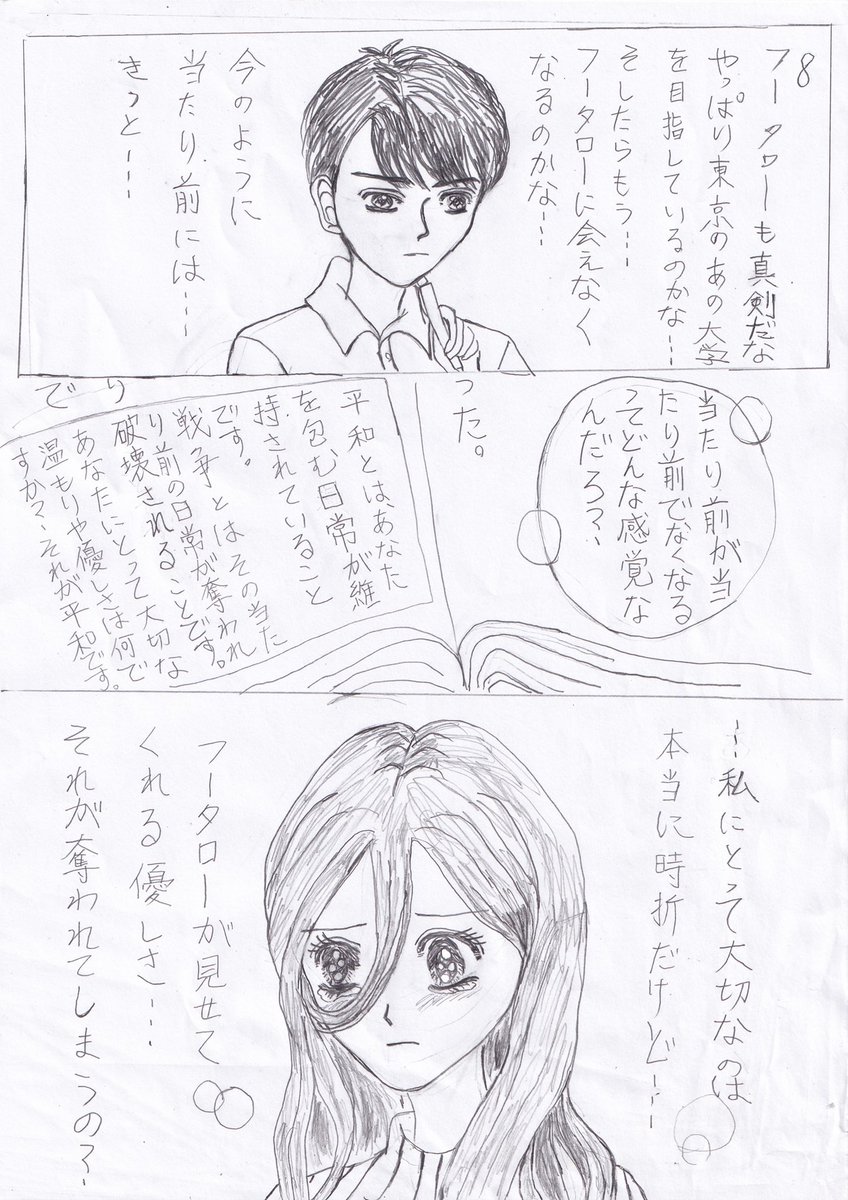 8
フータローも真剣だな
やっぱり東京のあの大学
を目指しているのかな…
そしたらもう…
フータローに会えなく
なるのかな…
今のように
当たり前には…
きっと…
当たり前が当
たり前でなくなる
ってどんな感覚な
んだろ?
った。
平和とはあなた
を包む日常が維
持されていること
です。
戦争とはその当た
り前の日常が奪われ
破壊されることです。
あなたにとって大切な
温もりや優しさは何で
すか?それが平和です。
り
で
…私にとって大切なのは
本当に時折だけど…
フータローが見せて
くれる優しさ…
それが奪われてしまうの?